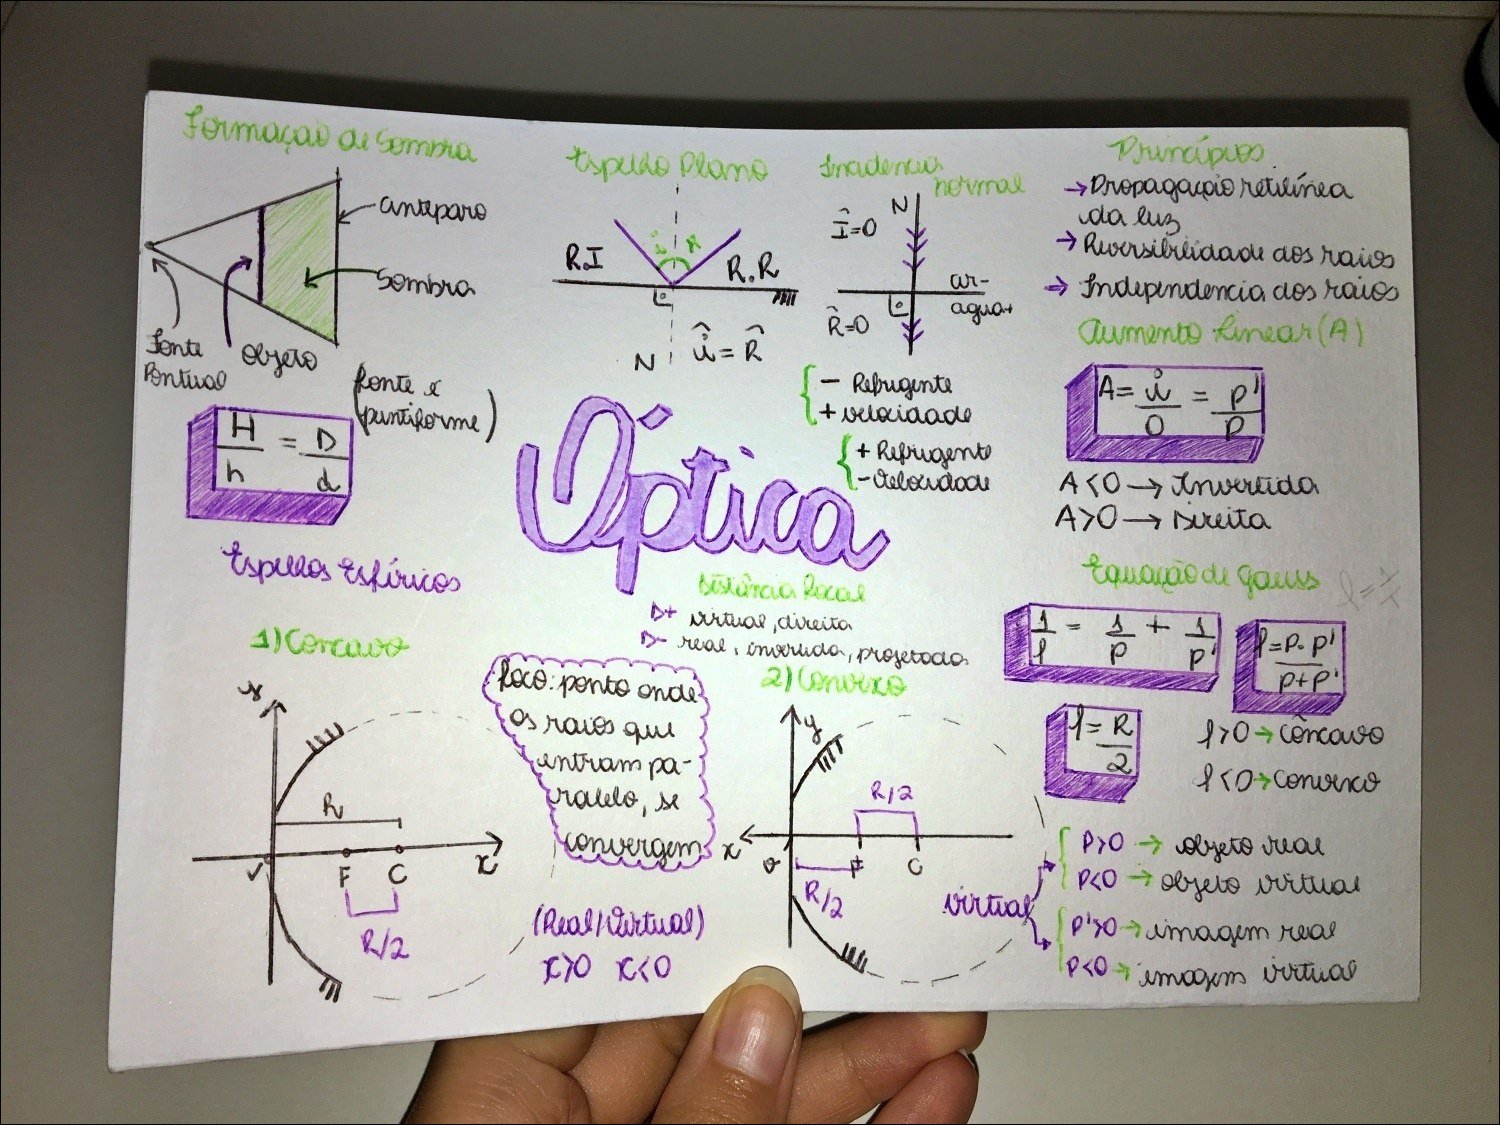 Formação de Sombra
anteparo
Sombra
Fonte
Pontual
Objeto
(fonte é
puntiforme)
H/h = D/d
Espelho Plano
R.I
i
R
R.R
N
î = R̂
Incidencia
normal
N
Î=0
ar-
agua+
R̂=0
- Refrigente
+ velocidade
+ Refrigente
- Velocidade
Princípios
→ Propagação retilínea
da luz
→ Reversibilidade dos raios
→ Independencia dos raios
Aumento Linear (A)
A = i/O = p'/p
A<0 → Invertida
A>0 → Direita
Óptica
Espelhos Esféricos
1) Concavo
y
R
V
F
C
x
R/2
Distância Focal
D+ virtual, direita
D- real, invertida, projetada
foco: ponto onde
os raios que
entram pa-
ralelo, se
convergem
(Real/Virtual)
x>0 x<0
2) Convexo
y
R/2
x
F
C
R/2
Equação de Gauss
1/f = 1/p + 1/p'
f = p.p'/p+p'
f = R/2
f>0 → côncavo
f<0 → convexo
virtual
P>0 → objeto real
P<0 → objeto virtual
P'>0 → imagem real
P<0 → imagem virtual